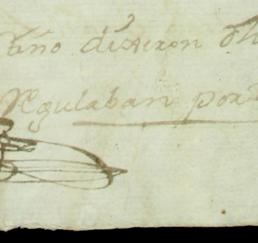 año dixeron
Regulaban por